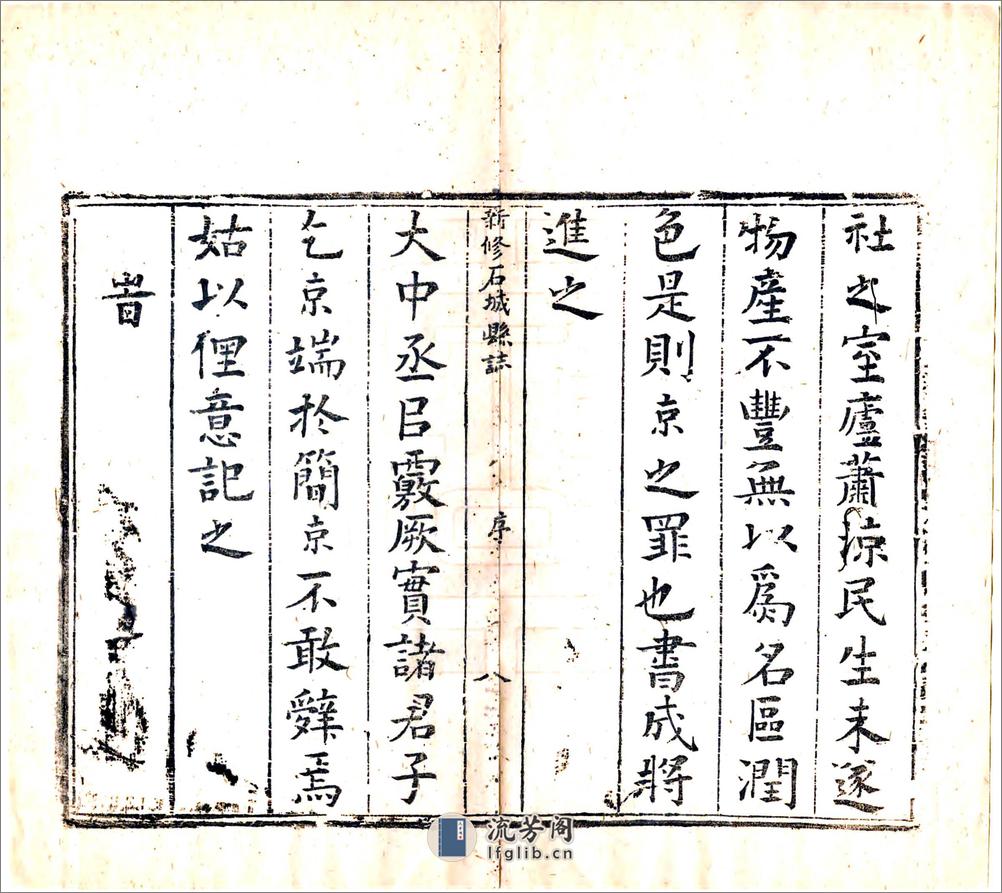 社之室廬蕭凉民生未遂
物產不豐無以爲名區潤
色是則京之罪也書成將
進之
新修石城縣誌 序 八
大中丞臣覈厥實諸君子
乞京端於簡京不敢辭焉
姑以俚意記之
旹
流芳阁
lfglib.cn